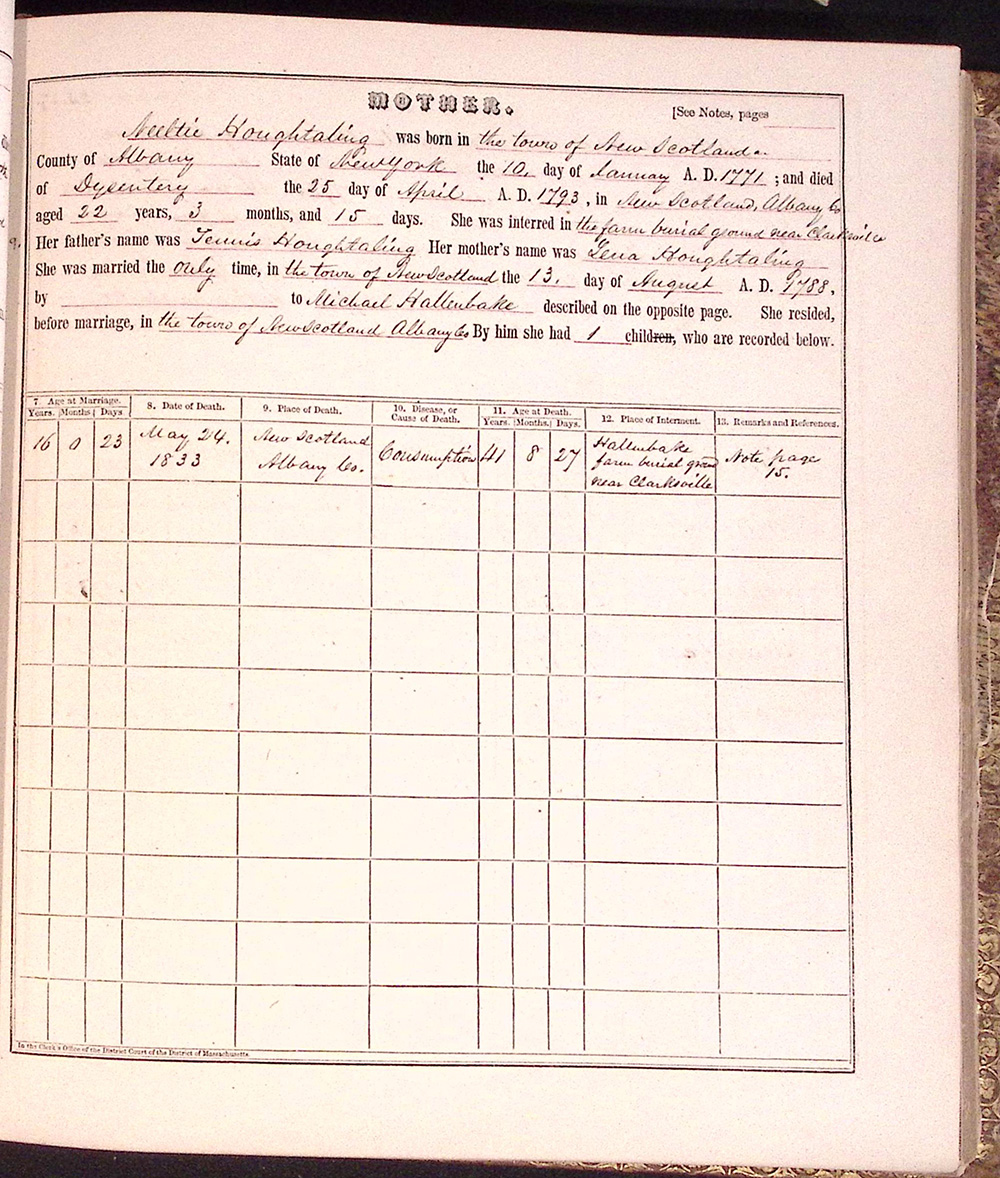 MOTHER.
[See Notes, pages
Neeltie Houghtaling was born in the town of New Scotland
County of Albany State of New York the 10. day of January A. D. 1771 ; and died
of Dysentery the 25 day of April A. D. 1793 , in New Scotland, Albany Co
aged 22 years, 3 months, and 15 days. She was interred in the farm burial ground near Clarksville
Her father's name was Teunis Houghtaling Her mother's name was Lena Houghtaling
She was married the only time, in the town of New Scotland the 13. day of August A. D. 1788,
by to Michael Hallenbake described on the opposite page. She resided,
before marriage, in the town of New Scotland Albany Co By him she had 1 children, who are recorded below.
7. Age at Marriage. 8. Date of Death. 9. Place of Death. 10. Disease, or Cause of Death. 11. Age at Death. 12. Place of Interment. 13. Remarks and References.
Years. Months. Days. Years. Months. Days.
16 0 23 May 24. 1833 New Scotland Albany Co. Consumption 41 8 27 Hallenbake farm burial ground near Clarksville Note page 15.
In the Clerk's Office of the District Court of the District of Massachusetts.